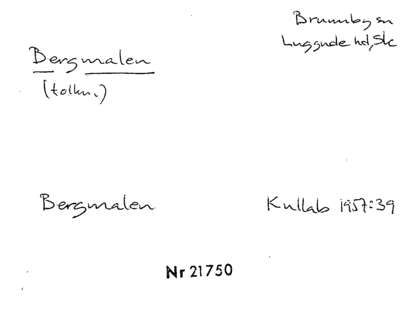 Brunnby sn
Luggude hd, Sk
Bergmalen
(tolkn.)
Bergmalen
Kullab 1957:39
Nr 21750